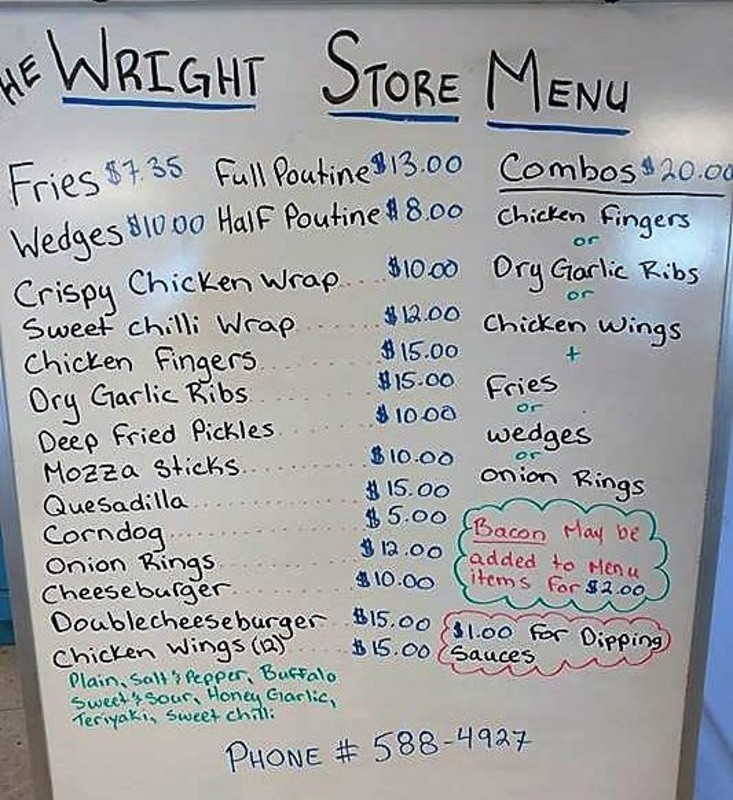 THE WRIGHT STORE MENU
Fries $7.35 Full Poutine $13.00
Wedges $10.00 Half Poutine $8.00
Crispy Chicken Wrap.... $10.00
Sweet chilli Wrap....... $12.00
Chicken Fingers.......... $15.00
Dry Garlic Ribs.......... $15.00
Deep Fried Pickles....... $10.00
Mozza Sticks............. $10.00
Quesadilla............... $15.00
Corndog.................. $5.00
Onion Rings.............. $12.00
Cheeseburger............. $10.00
Doublecheeseburger... $15.00
Chicken Wings (12)...... $15.00
Plain, Salt & Pepper, Buffalo
Sweet & Sour, Honey Garlic,
Teriyaki, Sweet chilli
Combos $20.00
Chicken Fingers
or
Dry Garlic Ribs
or
Chicken Wings
+
Fries
or
wedges
or
Onion Rings
Bacon May be
added to Menu
items for $2.00
$1.00 For Dipping
Sauces
PHONE # 588-4927